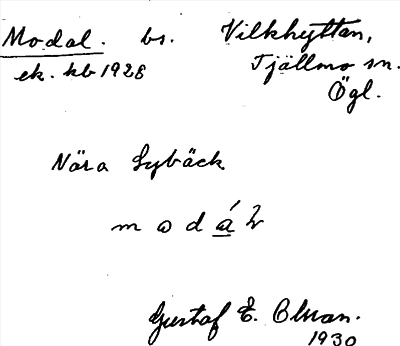 Modal. bs. Vilkhyttan,
ek. kb 1928 Tjällmo sn.
Ögl.
Nära Sybäck
m o d á
Gustaf E.
1930